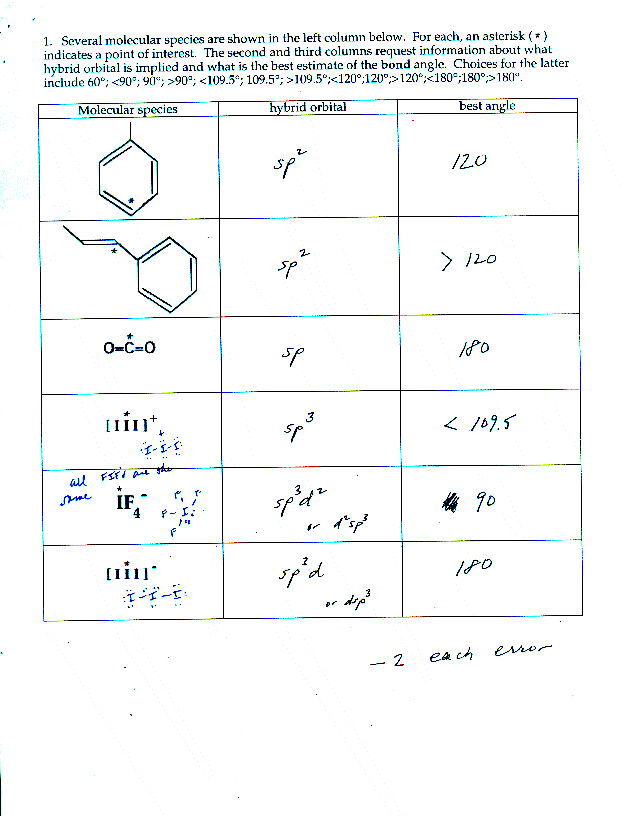 1. Several molecular species are shown in the left column below. For each, an asterisk (*)
indicates a point of interest. The second and third columns request information about what
hybrid orbital is implied and what is the best estimate of the bond angle. Choices for the latter
include 60°; <90°; 90°; >90°; <109.5°; 109.5°; >109.5°;<120°;120°;>120°;<180°;180°;>180°.
Molecular species hybrid orbital best angle
* sp² 120
* sp² > 120
*
O=C=O sp 180
*
[III]⁺ sp³ < 109.5
I-I-I
all are the
same
*
IF₄⁻ sp³d² 90
or d²sp³
*
[III]⁻ sp³d 180
I-I-I or dsp³
- 2 each error